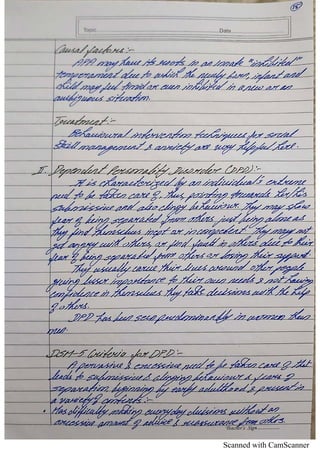 Topic
Date
Causal factors :-
APD may have its roots in an innate "inhibited"
temperament due to which the newly born, infant and
child may feel timid or even inhibited in a new or an
ambiguous situation.
Treatment :-
Behavioural intervention techniques for social
skill management & anxiety are very helpful
II. Dependent Personality Disorder (DPD) :-
It is characterized by an individual's extreme
need to be taken care of, thus, pointing towards his/her
submissive and also clingy behaviour. They may show
fear of being separated from others, just being alone as
they find themselves inept or incompetent. They may not
get angry with others, or find fault in others due to their
fear of being separated from others or losing their support.
They usually carve their lives around other people
giving lesser importance to their own needs & not having
confidence in themselves they take decisions with the help
of others.
DPD has been seen predominantly in women than
men
DSM-5 Criteria for DPD :-
A pervasive & excessive need to be taken care of that
leads to submissive & clinging behaviour & fears of
separation, beginning by early adulthood & present in
a variety of contexts :-
• Has difficulty making everyday decisions without an
excessive amount of advice & reassurance from others.
Teacher's Sign
Scanned with CamScanner